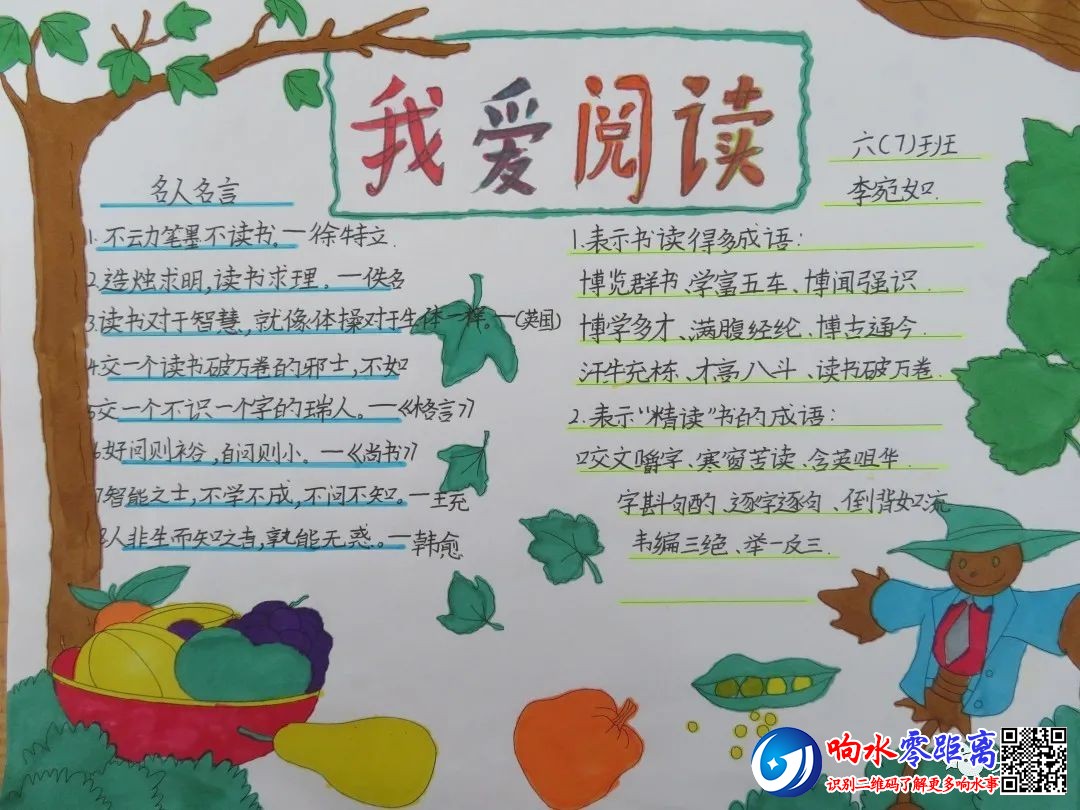 我爱阅读
六(7)班
李宛如
名人名言
1.不云力笔墨不读书。—徐特立.
2.造烛求明,读书求理。—佚名
3.读书对于智慧,就像体操对于生体一样。—(英国)
4.交一个读书破万卷的邪士,不如
5交一个不识一个字的瑞人。—《格言》
6好问则裕,自问则小。—《尚书》
7智能之士,不学不成,不问不知。—王充
8人非生而知之者,孰能无惑。—韩愈
1.表示书读得多成语:
博览群书、学富五车、博闻强识
博学多才、满腹经纶、博古通今.
汗牛充栋、才高八斗、读书破万卷.
2.表示“精读”书的成语:
咬文嚼字、寒窗苦读、含英咀华
字斟句酌、逐字逐句、倒背如流
韦编三绝、举一反三.
响水零距离
识别二维码了解更多响水事